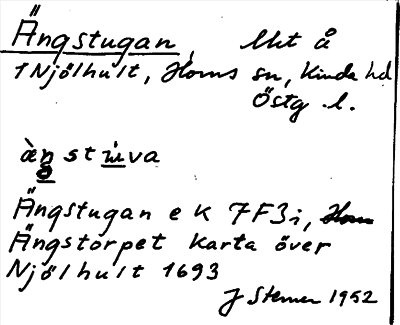 Ängstugan, lht å
1 Njölhult, Horns sn, Kinda hd
Östg. l.
àn st u̇va
Ängstugan ek 7F3i,
Ängstorpet karta över
Njölhult 1693
J Sterner 1952